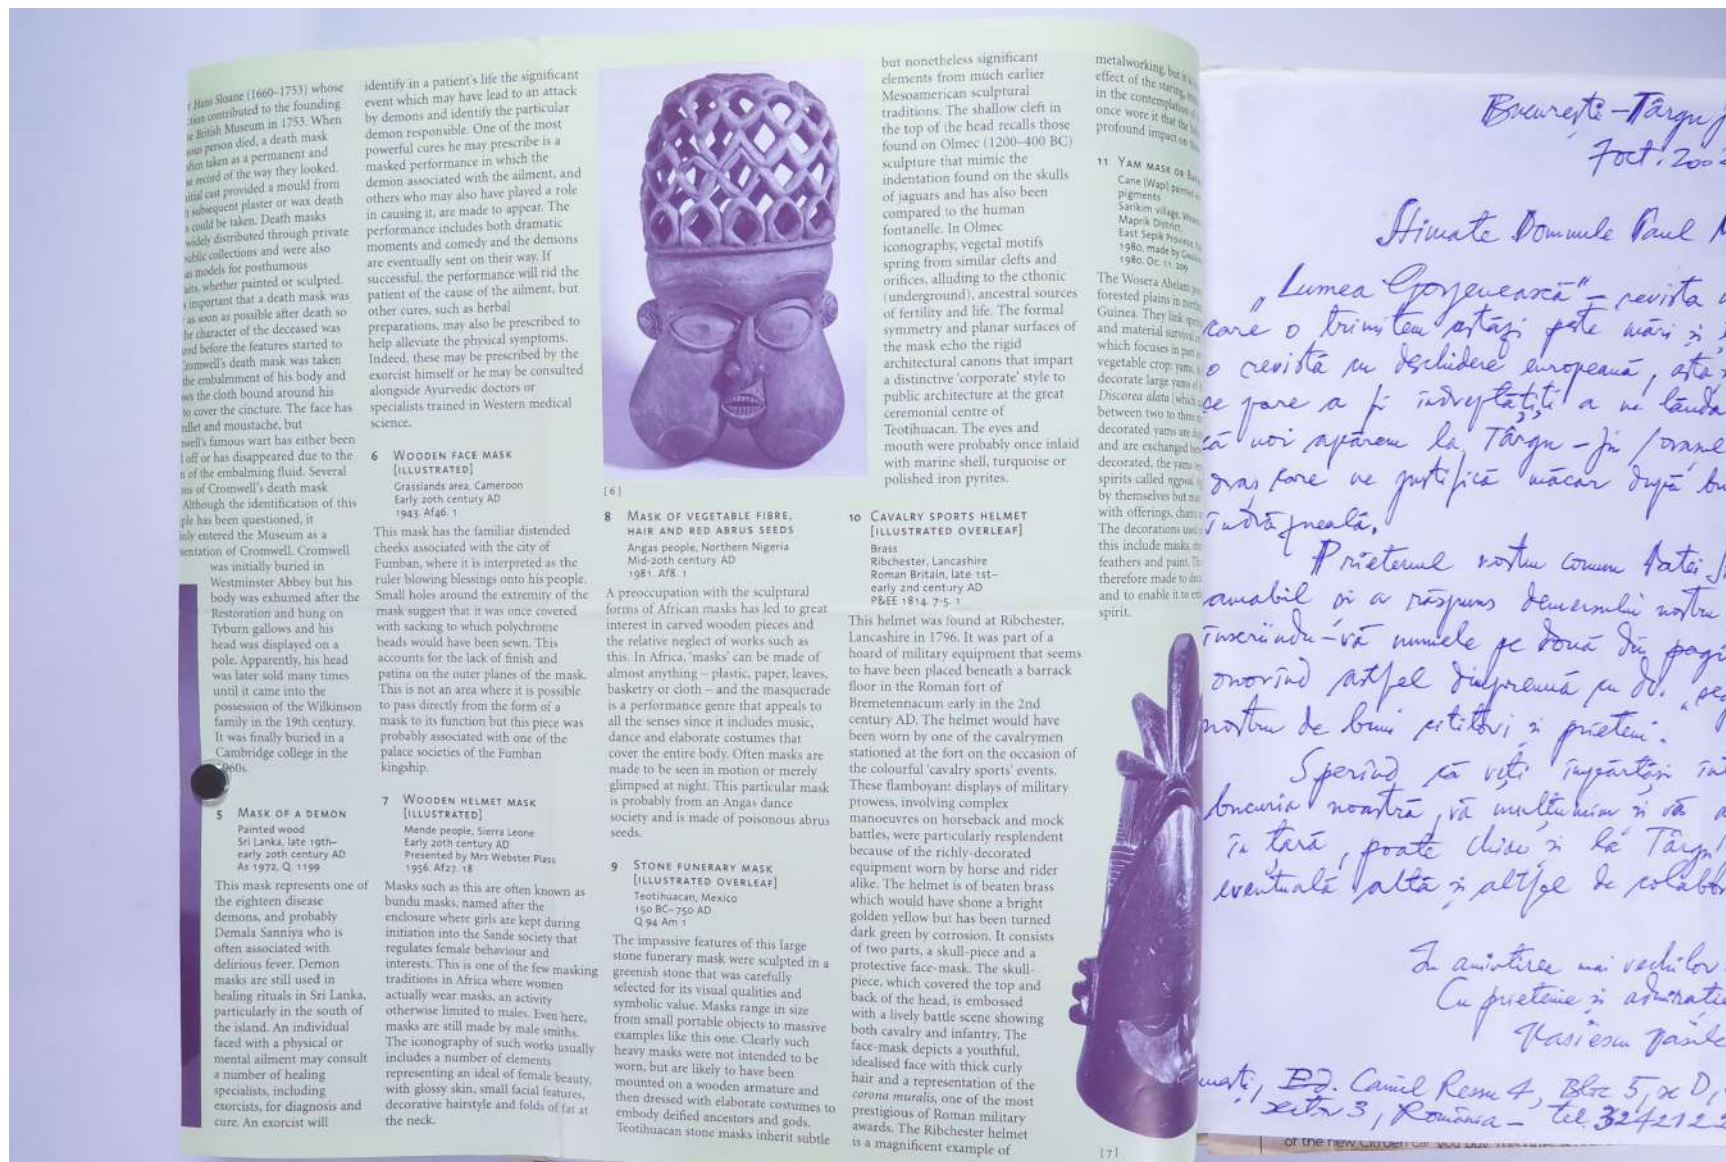 r Hans Sloane (1660–1753) whose
contributed to the founding
British Museum in 1753. When
person died, a death mask
often taken as a permanent and
record of the way they looked.
cast provided a mould from
subsequent plaster or wax death
could be taken. Death masks
widely distributed through private
public collections and were also
as models for posthumous
whether painted or sculpted.
important that a death mask was
as soon as possible after death so
he character of the deceased was
before the features started to
Cromwell's death mask was taken
the embalmment of his body and
the cloth bound around his
to cover the cincture. The face has
and moustache, but
famous wart has either been
off or has disappeared due to the
of the embalming fluid. Several
of Cromwell's death mask
Although the identification of this
has been questioned, it
entered the Museum as a
of Cromwell. Cromwell
was initially buried in
Westminster Abbey but his
body was exhumed after the
Restoration and hung on
Tyburn gallows and his
head was displayed on a
pole. Apparently, his head
was later sold many times
until it came into the
possession of the Wilkinson
family in the 19th century.
It was finally buried in a
Cambridge college in the
960s.
5 MASK OF A DEMON
Painted wood
Sri Lanka, late 19th–
early 20th century AD
As 1972, Q. 1199
This mask represents one of
the eighteen disease
demons, and probably
Demala Sanniya who is
often associated with
delirious fever. Demon
masks are still used in
healing rituals in Sri Lanka,
particularly in the south of
the island. An individual
faced with a physical or
mental ailment may consult
a number of healing
specialists, including
exorcists, for diagnosis and
cure. An exorcist will
identify in a patient's life the significant
event which may have lead to an attack
by demons and identify the particular
demon responsible. One of the most
powerful cures he may prescribe is a
masked performance in which the
demon associated with the ailment, and
others who may also have played a role
in causing it, are made to appear. The
performance includes both dramatic
moments and comedy and the demons
are eventually sent on their way. If
successful, the performance will rid the
patient of the cause of the ailment, but
other cures, such as herbal
preparations, may also be prescribed to
help alleviate the physical symptoms.
Indeed, these may be prescribed by the
exorcist himself or he may be consulted
alongside Ayurvedic doctors or
specialists trained in Western medical
science.
6 WOODEN FACE MASK
[ILLUSTRATED]
Grasslands area, Cameroon
Early 20th century AD
1943. Af46. 1
This mask has the familiar distended
cheeks associated with the city of
Fumban, where it is interpreted as the
ruler blowing blessings onto his people.
Small holes around the extremity of the
mask suggest that it was once covered
with sacking to which polychrome
beads would have been sewn. This
accounts for the lack of finish and
patina on the outer planes of the mask.
This is not an area where it is possible
to pass directly from the form of a
mask to its function but this piece was
probably associated with one of the
palace societies of the Fumban
kingship.
7 WOODEN HELMET MASK
[ILLUSTRATED]
Mende people, Sierra Leone
Early 20th century AD
Presented by Mrs Webster Plass
1956. Af27. 18
Masks such as this are often known as
bundu masks, named after the
enclosure where girls are kept during
initiation into the Sande society that
regulates female behaviour and
interests. This is one of the few masking
traditions in Africa where women
actually wear masks, an activity
otherwise limited to males. Even here,
masks are still made by male smiths.
The iconography of such works usually
includes a number of elements
representing an ideal of female beauty,
with glossy skin, small facial features,
decorative hairstyle and folds of fat at
the neck.
[6]
8 MASK OF VEGETABLE FIBRE,
HAIR AND RED ABRUS SEEDS
Angas people, Northern Nigeria
Mid-20th century AD
1981. Af8. 1
A preoccupation with the sculptural
forms of African masks has led to great
interest in carved wooden pieces and
the relative neglect of works such as
this. In Africa, 'masks' can be made of
almost anything – plastic, paper, leaves,
basketry or cloth – and the masquerade
is a performance genre that appeals to
all the senses since it includes music,
dance and elaborate costumes that
cover the entire body. Often masks are
made to be seen in motion or merely
glimpsed at night. This particular mask
is probably from an Angas dance
society and is made of poisonous abrus
seeds.
9 STONE FUNERARY MASK
[ILLUSTRATED OVERLEAF]
Teotihuacan, Mexico
150 BC–750 AD
Q 94 Am 1
The impassive features of this large
stone funerary mask were sculpted in a
greenish stone that was carefully
selected for its visual qualities and
symbolic value. Masks range in size
from small portable objects to massive
examples like this one. Clearly such
heavy masks were not intended to be
worn, but are likely to have been
mounted on a wooden armature and
then dressed with elaborate costumes to
embody deified ancestors and gods.
Teotihuacan stone masks inherit subtle
but nonetheless significant
elements from much earlier
Mesoamerican sculptural
traditions. The shallow cleft in
the top of the head recalls those
found on Olmec (1200–400 BC)
sculpture that mimic the
indentation found on the skulls
of jaguars and has also been
compared to the human
fontanelle. In Olmec
iconography, vegetal motifs
spring from similar clefts and
orifices, alluding to the cthonic
(underground), ancestral sources
of fertility and life. The formal
symmetry and planar surfaces of
the mask echo the rigid
architectural canons that impart
a distinctive 'corporate' style to
public architecture at the great
ceremonial centre of
Teotihuacan. The eyes and
mouth were probably once inlaid
with marine shell, turquoise or
polished iron pyrites.
10 CAVALRY SPORTS HELMET
[ILLUSTRATED OVERLEAF]
Brass
Ribchester, Lancashire
Roman Britain, late 1st–
early 2nd century AD
P&EE 1814. 7-5. 1
This helmet was found at Ribchester,
Lancashire in 1796. It was part of a
hoard of military equipment that seems
to have been placed beneath a barrack
floor in the Roman fort of
Bremetennacum early in the 2nd
century AD. The helmet would have
been worn by one of the cavalrymen
stationed at the fort on the occasion of
the colourful 'cavalry sports' events.
These flamboyant displays of military
prowess, involving complex
manoeuvres on horseback and mock
battles, were particularly resplendent
because of the richly-decorated
equipment worn by horse and rider
alike. The helmet is of beaten brass
which would have shone a bright
golden yellow but has been turned
dark green by corrosion. It consists
of two parts, a skull-piece and a
protective face-mask. The skull-
piece, which covered the top and
back of the head, is embossed
with a lively battle scene showing
both cavalry and infantry. The
face-mask depicts a youthful,
idealised face with thick curly
hair and a representation of the
corona muralis, one of the most
prestigious of Roman military
awards. The Ribchester helmet
is a magnificent example of
metalworking, but
effect of the staring,
in the contemplation
once wore it that the
profound impact on
11 YAM MASK OR
Cane (Wapi) painted
pigments
Sarikim village,
Maprik District,
East Sepik Province,
1980, made by
1980. Oc. 11. 209
The Wosera Abelam
forested plains in
Guinea. They link
and material survival
which focuses in part
vegetable crop: yams.
decorate large yams
Discorea alata (which
between two to three
decorated yams are
and are exchanged
decorated, the yams
spirits called
by themselves but
with offerings,
The decorations
this include masks,
feathers and paint.
therefore made to
and to enable it to
spirit.
[7]
București – Târgu
7 oct. 200
Stimate Domnule Paul
„Lumea Gorjenească" – revista
care o trimitem astăzi peste mări și
o revistă cu deschidere europeană, astă
ce pare a fi îndreptățiți a ne lăuda
că noi apărem la Târgu-Jiu
oraș care ne justifică măcar după
îndrăzneală.
Prietenul nostru comun
amabil și a răspuns demersului nostru
înscriindu-vă numele pe două din
onorînd astfel dimpreună cu dv.
nostru de buni cititori și prieteni.
Sperînd că veți împărtăși
bucuria noastră, vă mulțumim și vă
în țară, poate chiar și la Târgu
eventuală altă și altfel de
În amintirea mai vechilor
Cu prietenie și admirație
Vasiescu Vasile
Bd. Camil Ressu 4, Bloc 5, sc D,
sector 3, România – tel. 3242122
of the new Citroën car you buy.